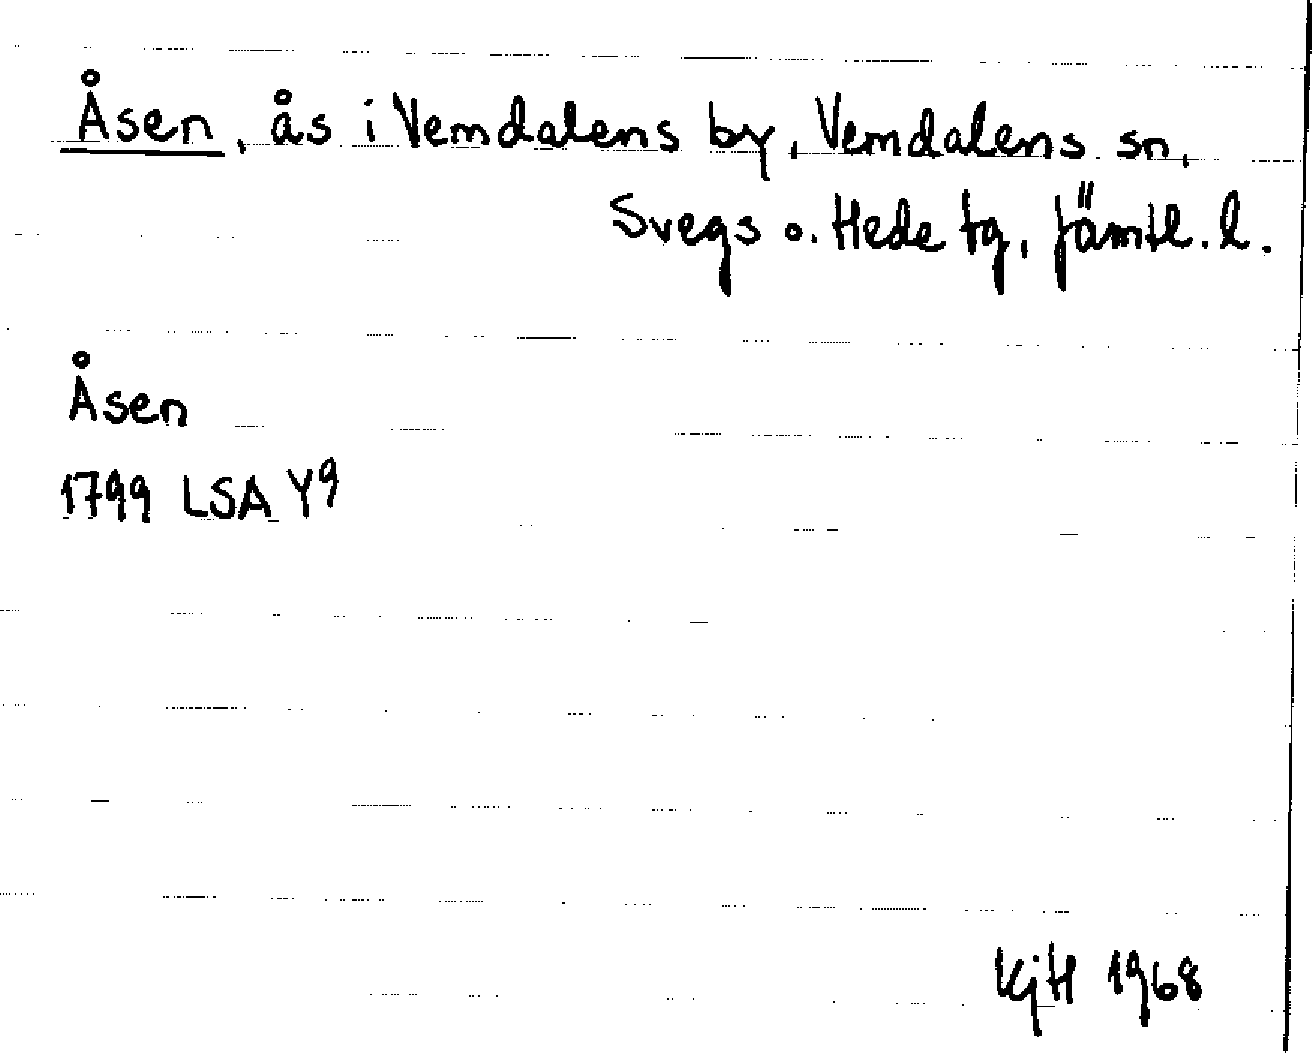 Åsen, ås i Vemdalens by, Vemdalens sn,
Svegs o. Hede tg, Jämtl. l.
Åsen
1799 LSA Y9
KjH 1968